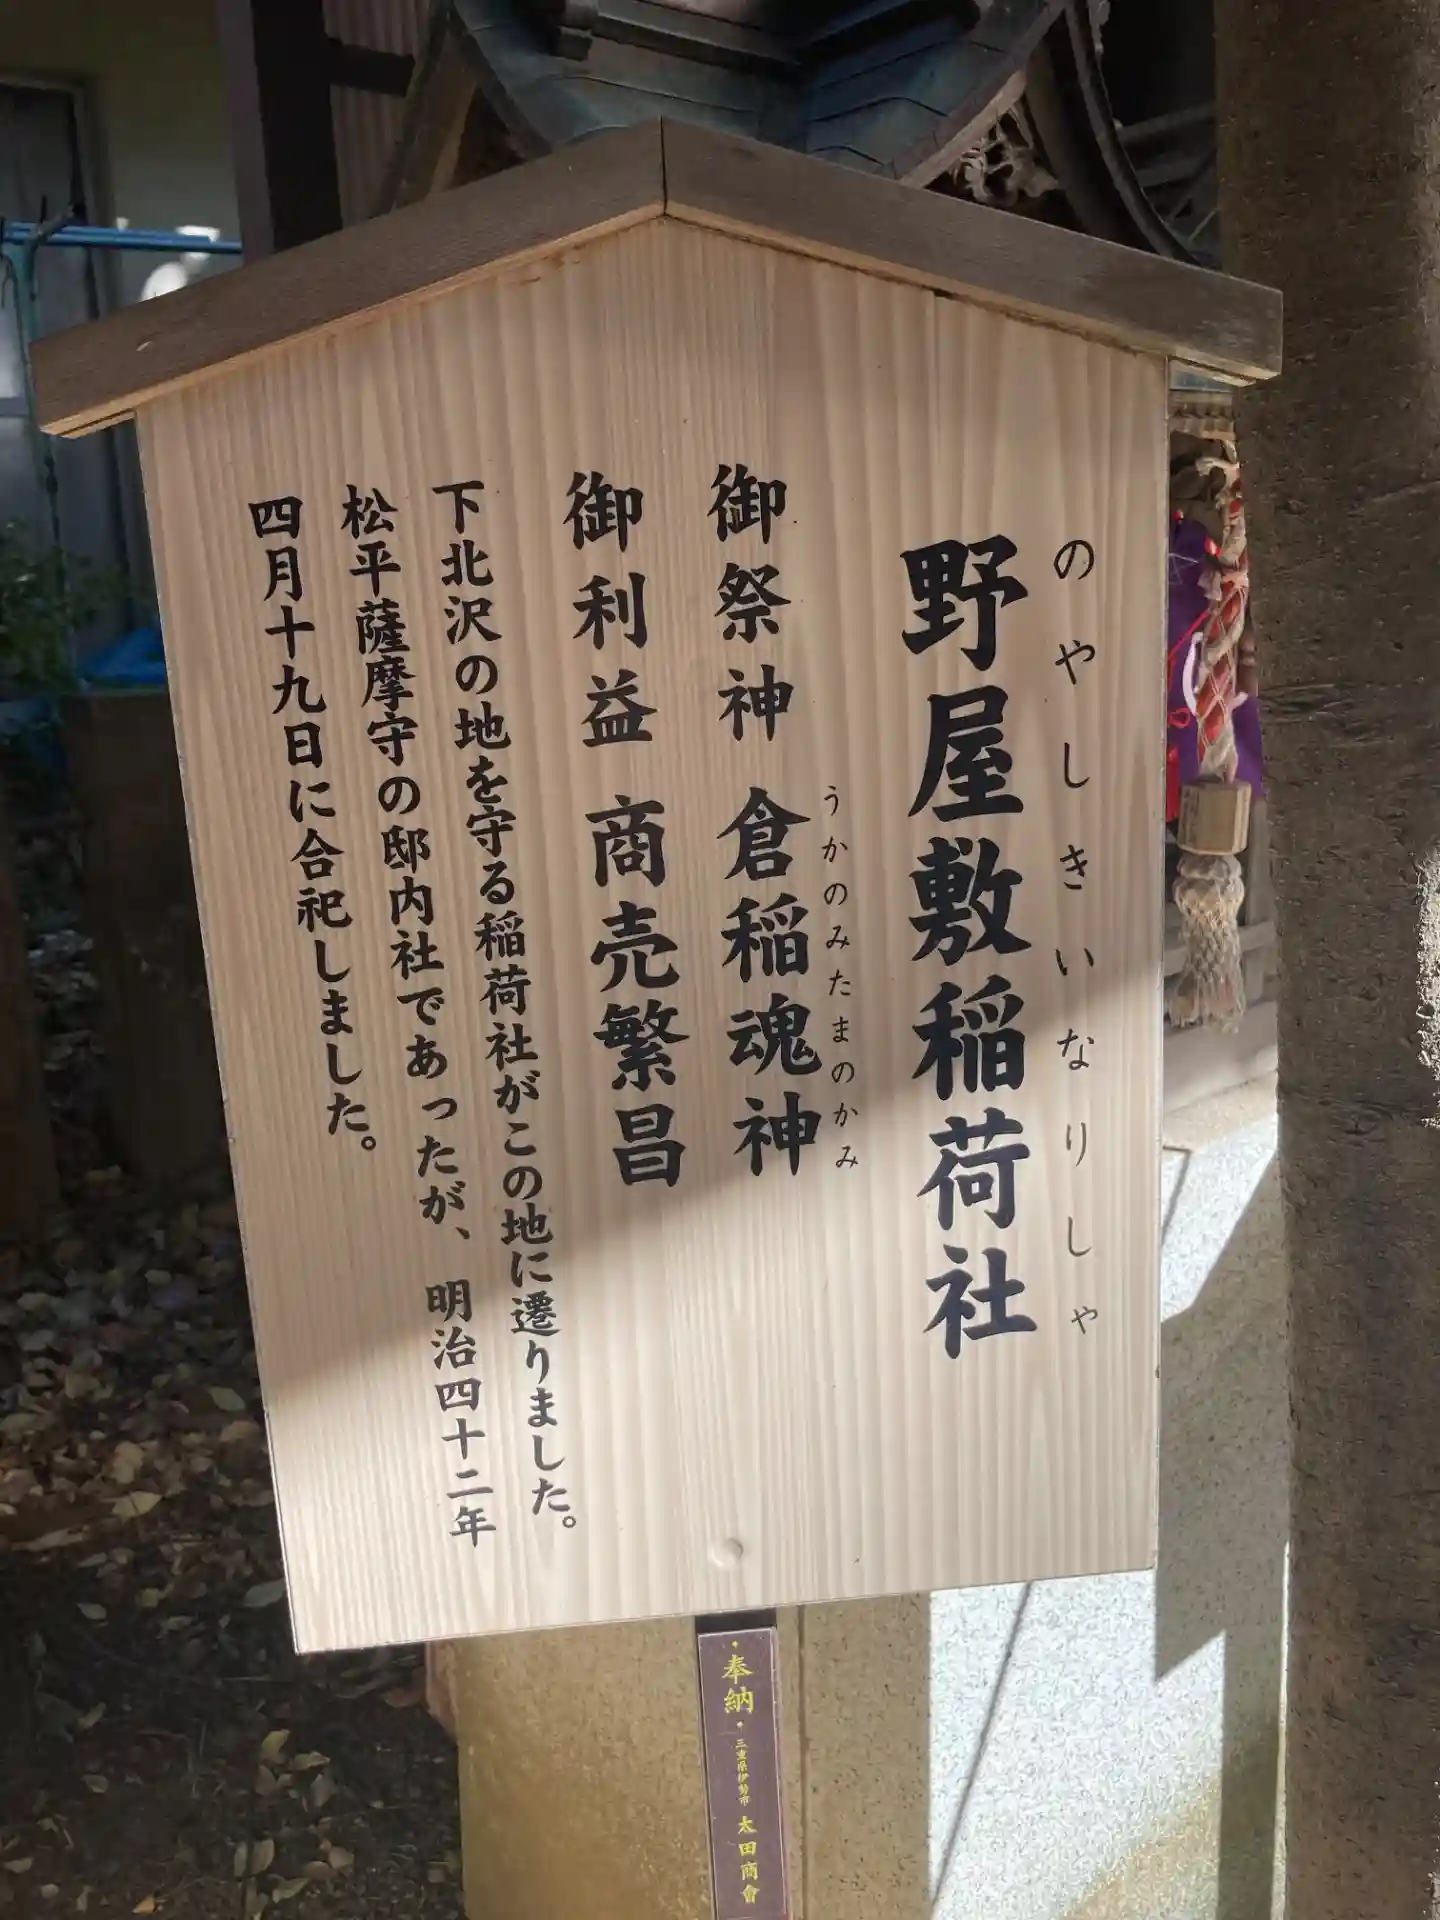 のやしきいなりしゃ
野屋敷稲荷社
うかのみたまのかみ
御祭神 倉稲魂神
御利益 商売繁昌
下北沢の地を守る稲荷社がこの地に遷りました。
松平薩摩守の邸内社であったが、明治四十二年
四月十九日に合祀しました。
・奉納・三重県伊勢市 太田商會